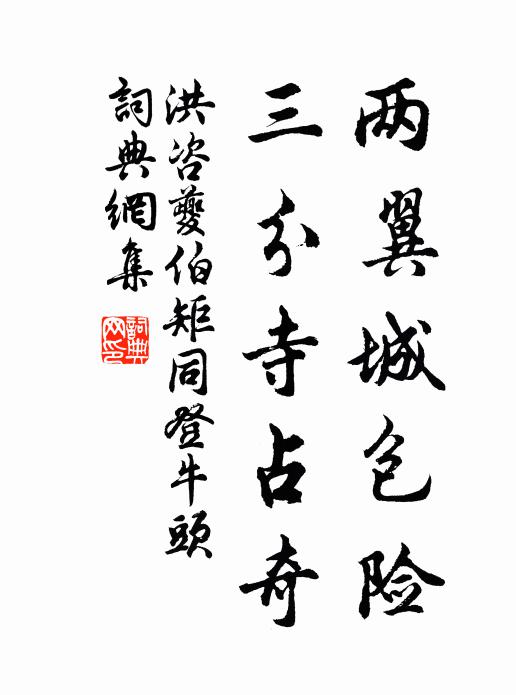 两翼城包险
三分寺占奇
洪咨夔伯矩同登牛頭
詞典網集
詞典
网印